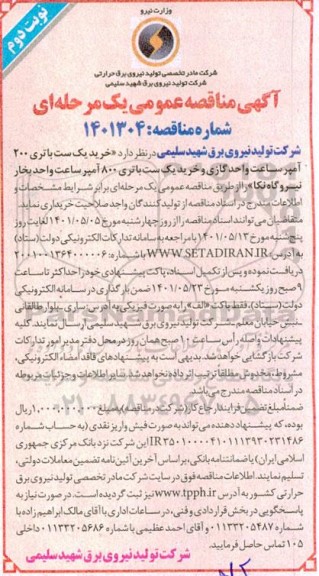 وزارت نیرو
نوبت دوم
شرکت مادر تخصصی تولید نیروی برق حرارتی
شرکت تولید نیروی برق شهید سلیمی
آگهی مناقصه عمومی یک مرحله‌ای
شماره مناقصه: ۱۴۰۱۳۰۴
شرکت تولید نیروی برق شهید سلیمی در نظر دارد «خرید یک ست باتری ۲۰۰
آمپر ساعت واحد گازی و خرید یک ست باتری ۸۰۰ آمپر ساعت واحد بخار
نیروگاه نکا» را از طریق مناقصه عمومی یک مرحله‌ای برابر شرایط مشخصات و
اطلاعات مندرج در اسناد مناقصه از تولید کنندگان واجد صلاحیت خریداری نماید.
متقاضیان می‌توانند اسناد مناقصه را از روز چهارشنبه مورخ ۱۴۰۱/۰۵/۰۵ لغایت روز
پنج‌شنبه مورخ ۱۴۰۱/۰۵/۱۳ با مراجعه به سامانه تدارکات الکترونیکی دولت (ستاد)
به آدرس: WWW.SETADIRAN.IR با شماره: ۲۰۰۱۰۰۱۳۶۴۰۰۰۰۰۶
دریافت نموده و پس از تکمیل اسناد، پاکت پیشنهادی خود را حداکثر تا ساعت
۹ صبح روز یکشنبه مورخ ۱۴۰۱/۰۵/۲۳ ضمن بارگذاری در سامانه الکترونیکی
دولت (ستاد)، فقط پاکت «الف» را به صورت فیزیکی به آدرس: ساری ـ بلوار طالقانی
ـ نبش خیابان معلم ـ شرکت تولید نیروی برق شهید سلیمی ارسال نمایند. کلیه
پیشنهادات واصله رأس ساعت ۱۰ صبح همان روز در محل دفتر مدیر امور تدارکات
شرکت بازگشایی خواهد شد. بدیهی است به پیشنهادهای فاقد امضاء الکترونیکی،
مشروط، مخدوش مطلقاً ترتیب اثر داده نخواهد شد. سایر اطلاعات و جزئیات مربوطه
در اسناد مناقصه مندرج می‌باشد.
ضمناً مبلغ تضمین فرایند ارجاع کار (شرکت در مناقصه) مبلغ ریال
بوده، که پیشنهاددهنده می‌تواند به صورت فیش واریز نقدی (به حساب شماره
IR این شرکت نزد بانک مرکزی جمهوری
اسلامی ایران) یا ضمانتنامه بانکی، بر اساس آخرین آئین‌نامه تضمین معاملات دولتی،
تسلیم نمایند. اطلاعات مناقصه فوق در سایت شرکت مادر تخصصی تولید نیروی برق
حرارتی کشور به آدرس www.tpph.ir نیز ثبت گردیده است. در صورت نیاز به
پاسخگویی در بخش قراردادی و فنی، در ساعات اداری با آقای مالک ابراهیم زاده با
شماره ۰۱۱۳۳۲۰۵۴۸۷ و آقای احمد عظیمی با شماره ۰۱۱۳۳۲۰۵۶۸۶ داخلی
۱۰۵ تماس حاصل فرمایید.
شرکت تولید نیروی برق شهید سلیمی